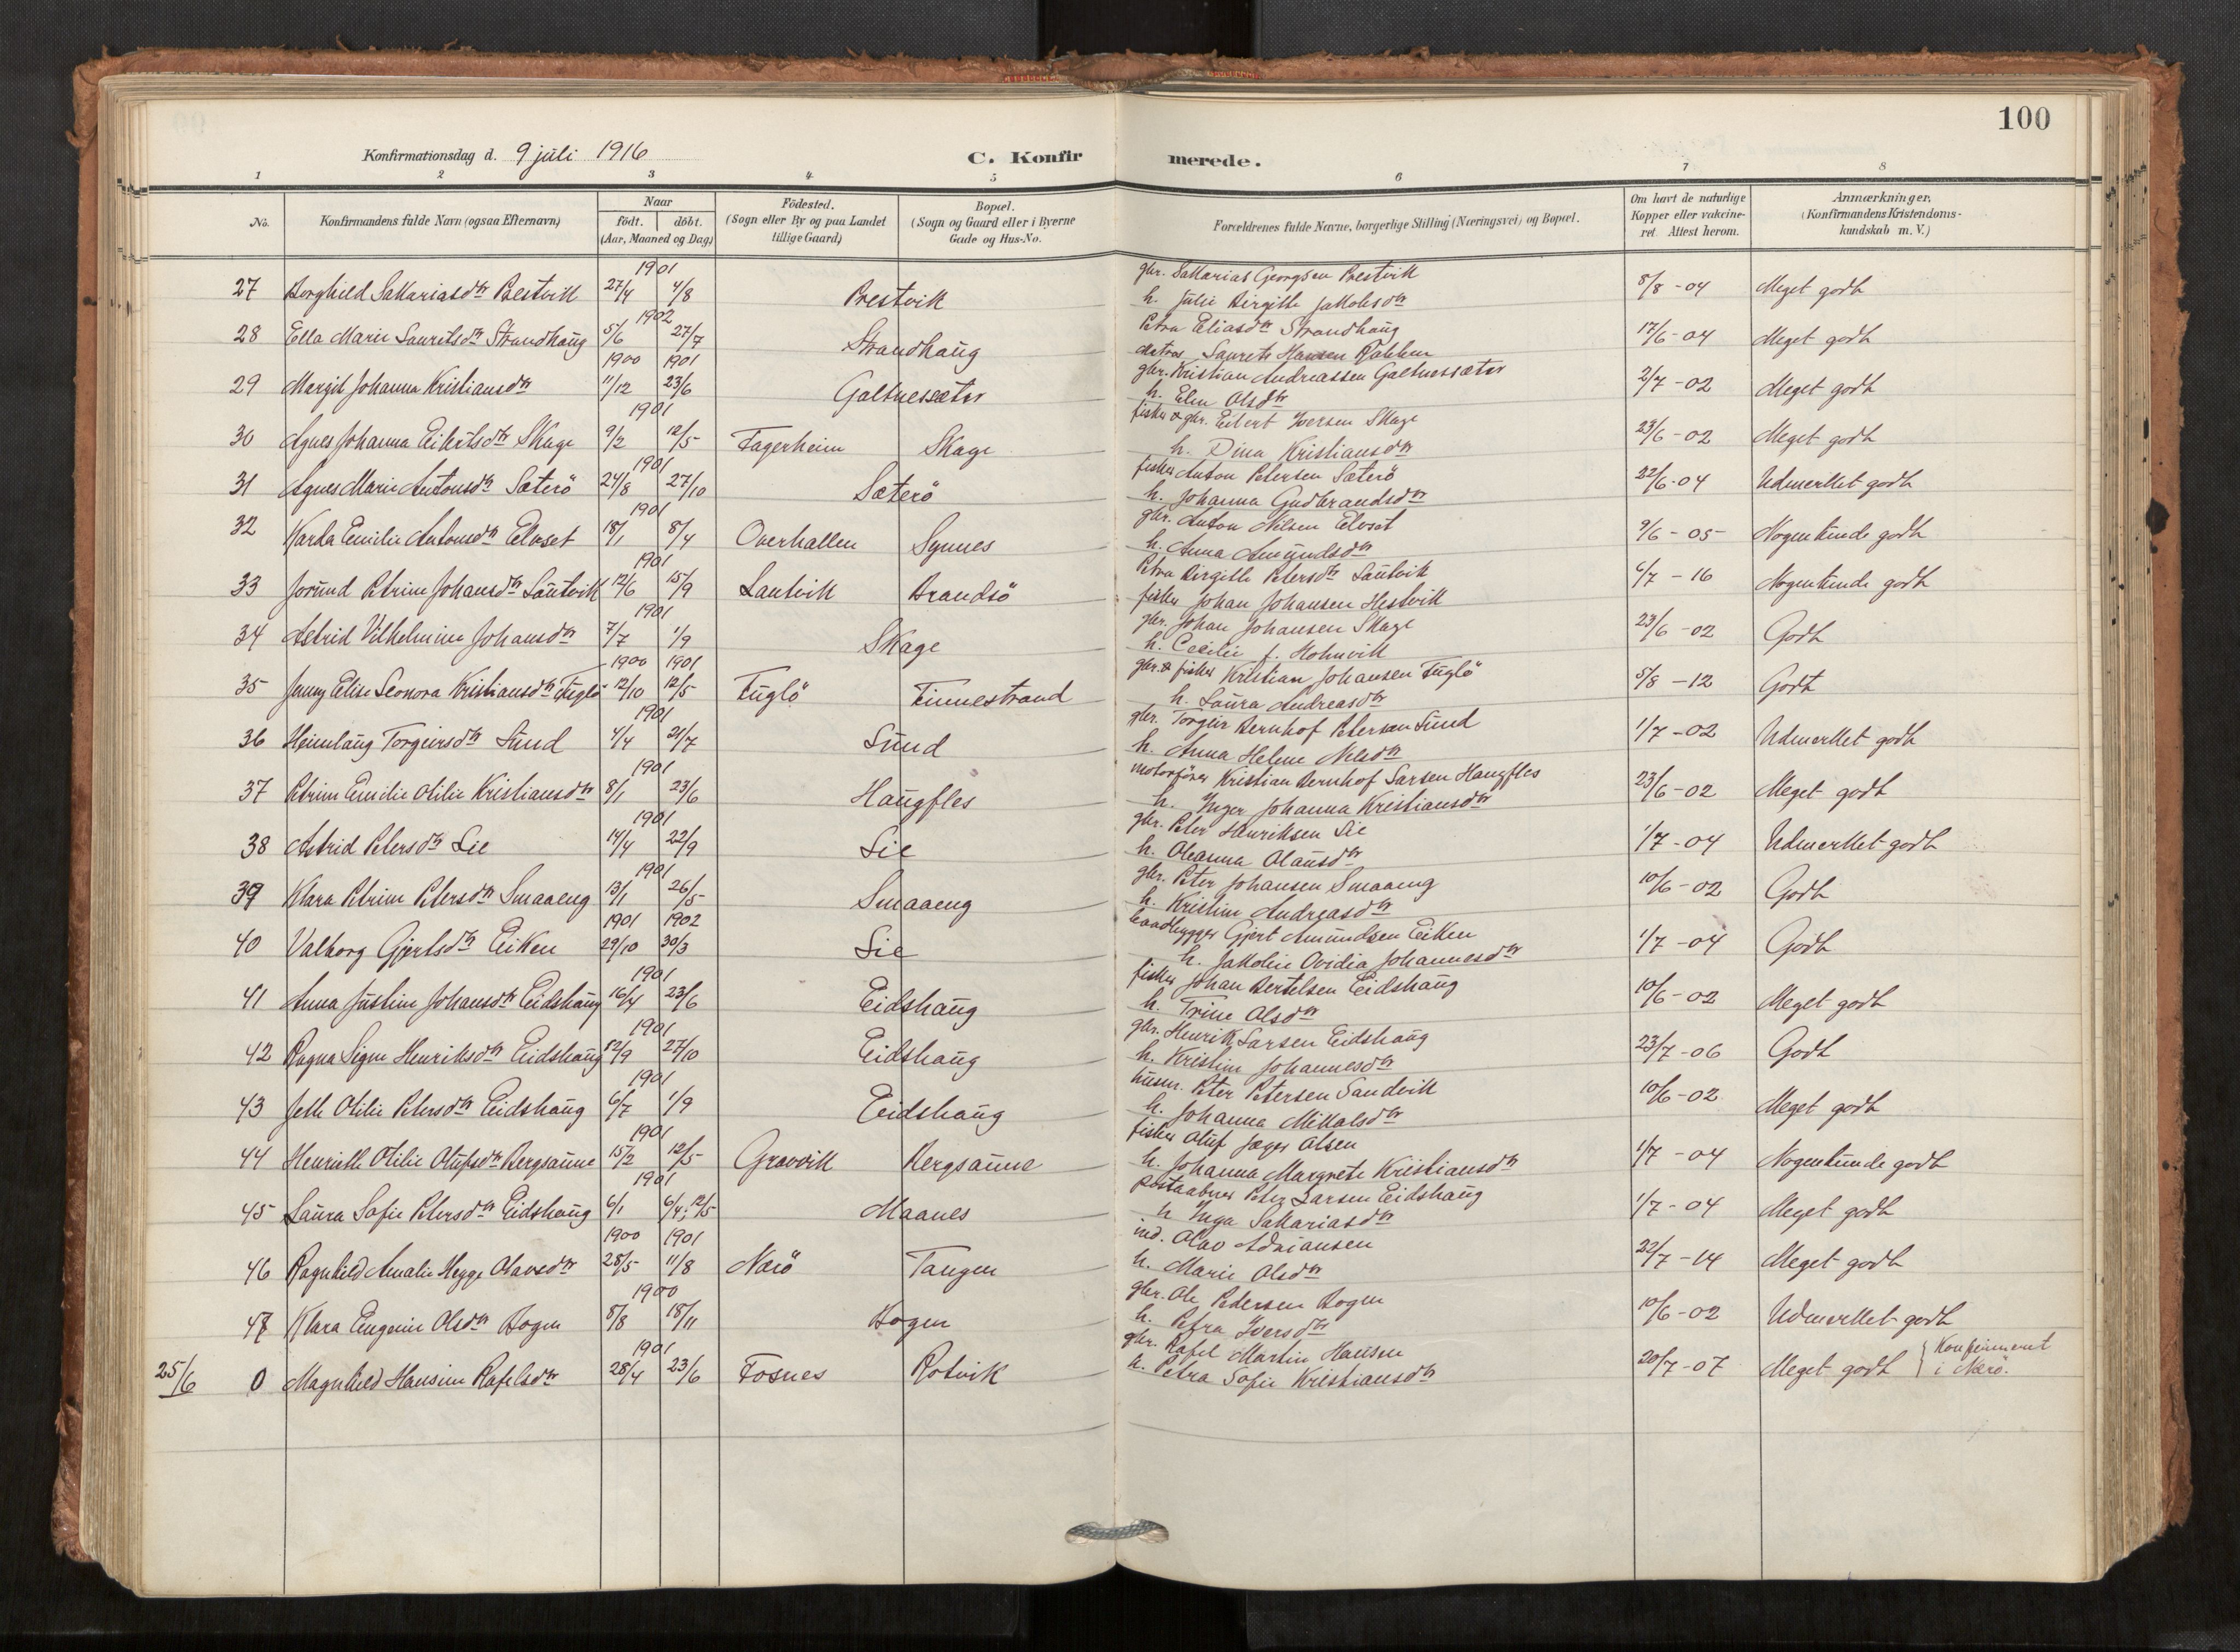 100
Konfirmationsdag d. 9 juli 1916
C. Konfirmerede.
1 2 3 4 5 6 7 8
No. Konfirmandens fulde Navn (ogsaa Efternavn) Naar født. døbt. (Aar, Maaned og Dag) Fødested. (Sogn eller By og paa Landet tillige Gaard) Bopæl. (Sogn og Gaard eller i Byerne Gade og Hus-No. Forældrenes fulde Navne, borgerlige Stilling (Næringsvei) og Bopæl. Om havt de naturlige Kopper eller vakcineret. Attest herom. Anmærkninger. (Konfirmandens Kristendomskundskab m. V.)
1901
gbr. Sakarias Georgsen Prestvik
27 Borghild Sakariasdtr Prestvik 27/4 4/8 Prestvik 8/8-04 Meget godt
h. Julie Birgitte Jakobsdtr
1902
Petra Eliasdtr Strandhaug
28 Ella Marie Lauritsdtr Strandhaug 5/6 27/7 Strandhaug 17/6-04 Meget godt
Matros Laurits Hansen
1900 1901
gbr. Kristian Andreassen Galtnessæter
29 Margit Johanna Kristiansdtr 11/12 23/6 Galtnesæter 2/7-02 Meget godt
h. Elen Olsdtr
1901
fisker & gbr. Eilert Iversen Skage
30 Agnes Johanna Eilertsdtr Skage 9/2 12/5 Fagerheim Skage 23/6-02 Meget godt
h. Dina Kristiansdtr
1901
fisker Anton Petersen Sæterö
31 Agnes Marie Antonsdtr Sæterö 24/8 27/10 Sæterö 22/6-04 Udmerket godt
h. Johanna Gudbrandsdtr
1901
gbr. Anton Nilsen Elvset
32 Karla Emilie Antonsdtr Elvset 18/1 8/4 Overhallen Synnes 9/6-05 Nogenlunde godt
h. Anna Amundsdtr
1901
Petra Birgitte Petersdtr Lautvik
33 Jorund Petrine Johansdtr Lautvik 12/6 15/9 Lautvik Brandsö 6/7-16 Nogenlunde godt
fisker Johan Johansen Hestvik
1901
gbr. Johan Johansen Skage
34 Astrid Vilhelmine Johansdtr 7/7 1/9 Skage 23/6-02 Godt
h. Cecilie f. Holmvik
1900 1901
gbr. & fisker Kristian Johansen Fuglö
35 Jenny Elise Leonora Kristiansdtr Fuglö 12/10 12/5 Fuglö Finnestrand 5/8-12 Godt
h. Laura Andreasdtr
1901
gbr. Torgeir Bernhof Petersen Sund
36 Heimlaug Torgeirsdtr Sund 4/4 21/7 Sund 1/7-02 Udmerket godt
h. Anna Helene Nelsdtr
1901
motorfører Kristian Bernhof Larsen Haugfles
37 Petrine Emilie Otilie Kristiansdtr 8/1 23/6 Haugfles 23/6-02 Meget godt
h. Inger Johanna Kristiansdtr
1901
gbr. Peter Henriksen Lie
38 Astrid Petersdtr Lie 14/4 22/9 Lie 1/7-04 Udmerket godt
h. Oleanna Olausdtr
1901
gbr. Peter Johansen Smaaeng
39 Klara Petrine Petersdtr Smaaeng 13/1 26/5 Smaaeng 10/6-02 Godt
h. Kristine Andreasdtr
1901 1902
baadbygger Gjert Amundsen Eiken
40 Valborg Gjertsdtr Eiken 29/10 30/3 Lie 1/7-04 Godt
h. Jakobie Ovidia Johannesdtr
1901
fisker Johan Bertelsen Eidshaug
41 Anna Justine Johansdtr Eidshaug 16/4 23/6 Eidshaug 10/6-02 Meget godt
h. Trine Olsdtr
1901
gbr. Henrik Larsen Eidshaug
42 Ragna Signe Henriksdtr Eidshaug 12/9 27/10 Eidshaug 23/7-06 Godt
h. Kristine Johannesdtr
1901
husm. Peter Petersen Sandvik
43 Jette Otilie Petersdtr Eidshaug 6/7 1/9 Eidshaug 10/6-02 Meget godt
h. Johanna Mikalsdtr
1901
fisker Oluf Jæger Olsen
44 Henriette Otilie Olufsdtr Bergsaune 15/2 12/5 Gravvik Bergsaune 1/7-04 Nogenlunde godt
h. Johanna Margrete Kristiansdtr
1901
postaabner Peter Larsen Eidshaug
45 Laura Sofie Petersdtr Eidshaug 6/1 6/4; 12/5 Maanes 1/7-04 Meget godt
h Inga Sakariasdtr
1900 1901
ind. Olav Adriansen
46 Ragnhild Amalie Hegge Olavsdtr 28/5 11/8 Nærö Tangen 22/7-14 Meget godt
h. Marie Olsdtr
1900
gbr. Ole Pedersen Bogen
47 Klara Eugenie Olsdtr Bogen 8/8 18/11 Bogen 10/6-02 Udmerket godt
h. Petra Iversdtr
1901
gbr. Rafel Martin Hansen
25/6 0 Magnhild Hansine Rafelsdtr 28/4 23/6 Fosnes Rotvik 20/7-07 Meget godt { Konfirmeret i Nærö.
h. Petra Sofie Kristiansdtr